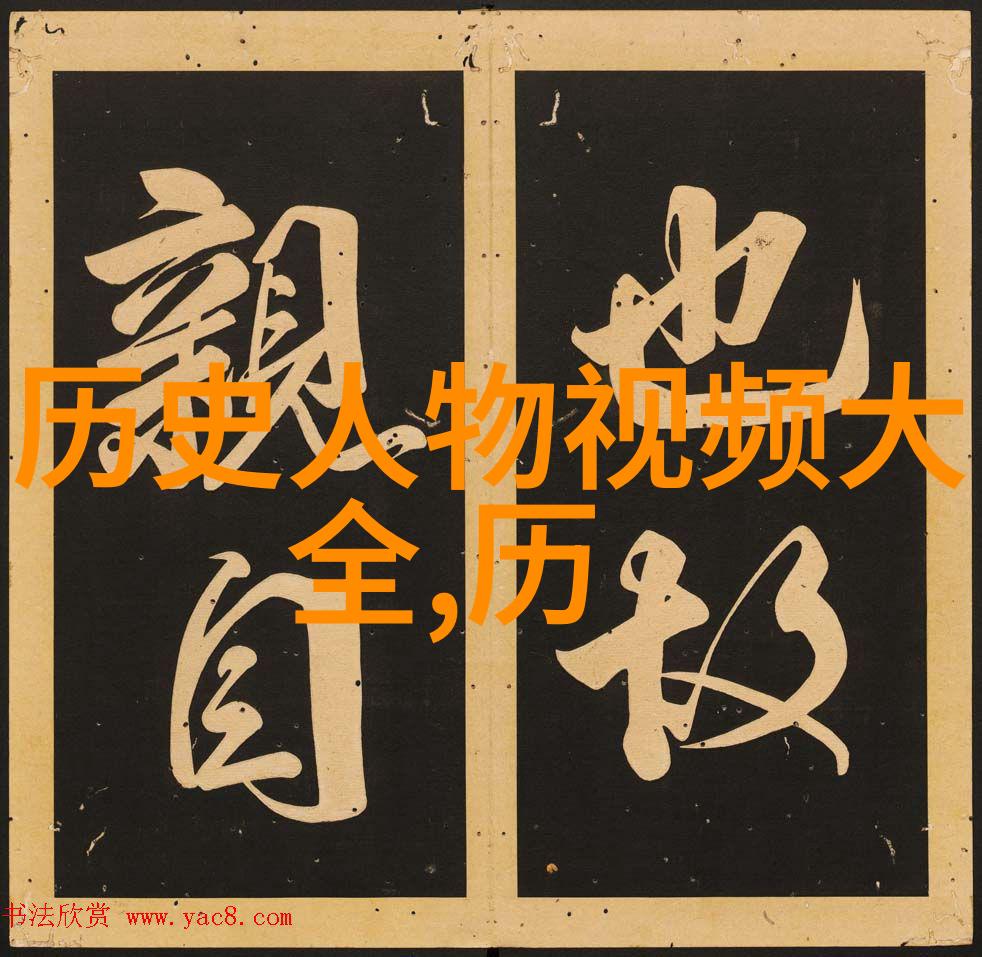 也故
親自
历史人物视频大
全,历
书法欣赏 www.yac8.com